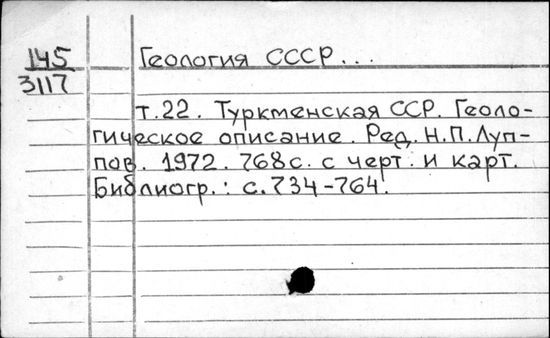 145
3117
Геология СССР...
т.22. Туркменская ССР. Геоло-
гическое описание. Ред. Н.П.Луп-
пов. 1972. 768с. с черт. и карт.
Библиогр.: с.734-764.